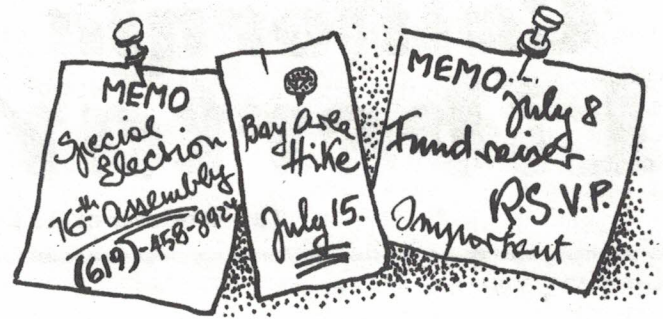 MEMO
Special
Election
76th Assembly
(619)-458-8924
Bay Area
Hike
July 15.
MEMO
July 8
Fundraiser
R.S.V.P.
Important